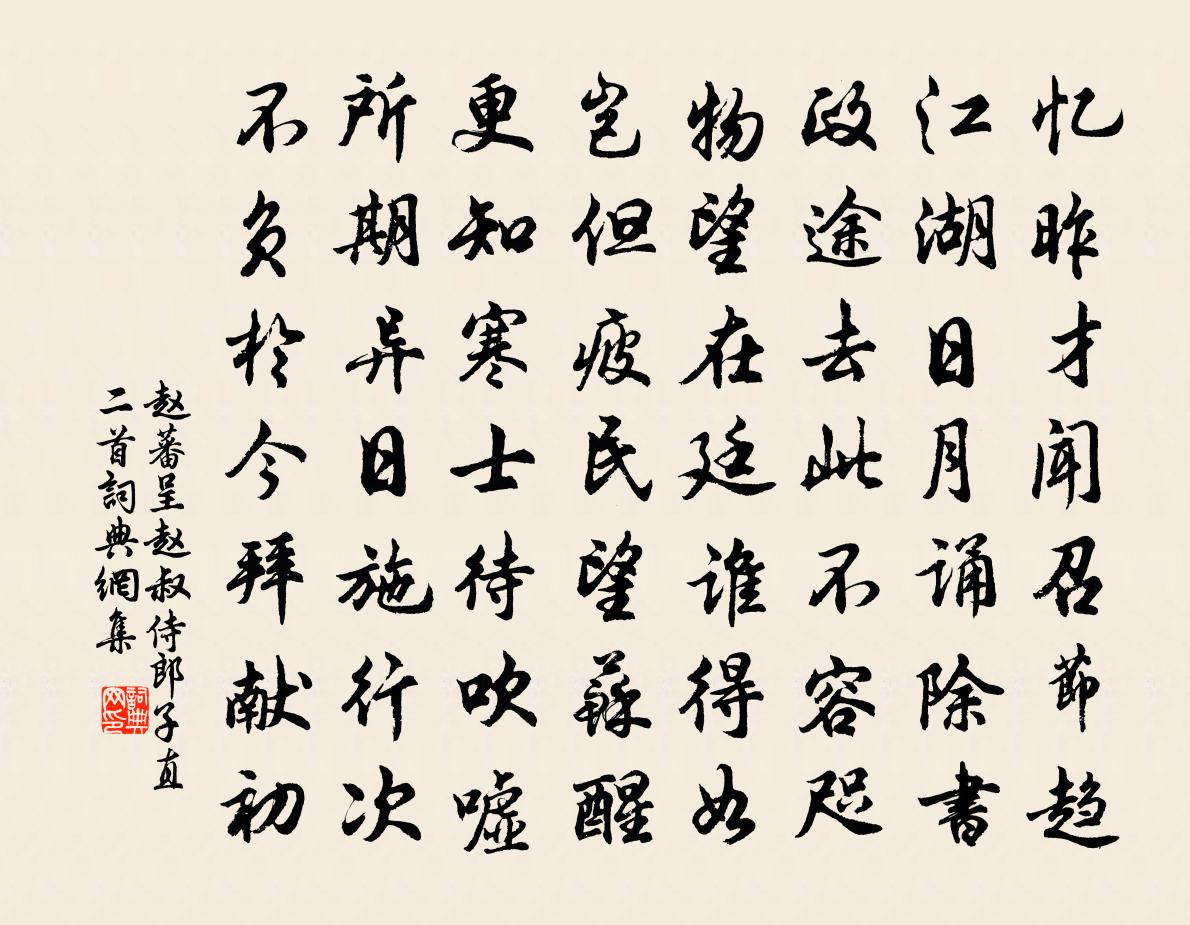 忆昨才闻召节趋
江湖日月诵除書
政途去此不容咫
物望在廷谁得如
岂但疲民望蘇醒
更知寒士待吹嘘
所期异日施行次
不负於今拜献初
赵蕃呈赵叔侍郎子直
二首詞典網集
詞典网印